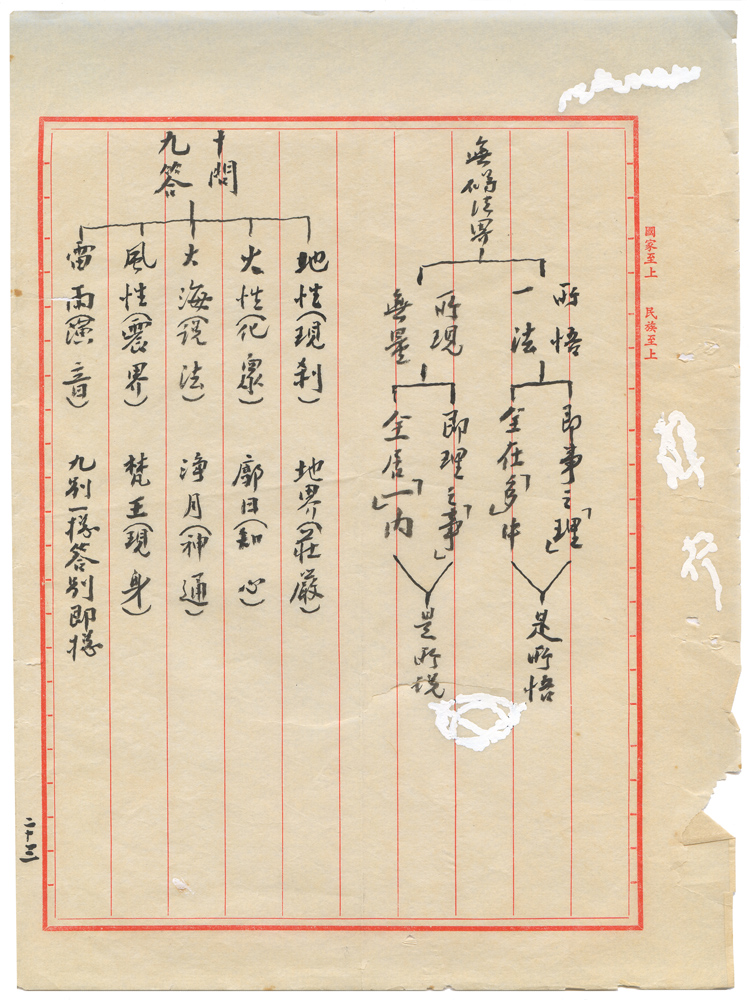 國家至上 民族至上
無礙法界
所悟
一法
即事之「理」
全在「多」中
是所悟
所現
無量
即理之「事」
全居「一」內
是所說
十問
九答
地性(現剎) 地界(莊嚴)
火性(化眾) 廓日(知心)
大海(說法) 淨月(神通)
風性(震界) 梵王(現身)
雷雨(演音) 九別一總答別即總
二十三